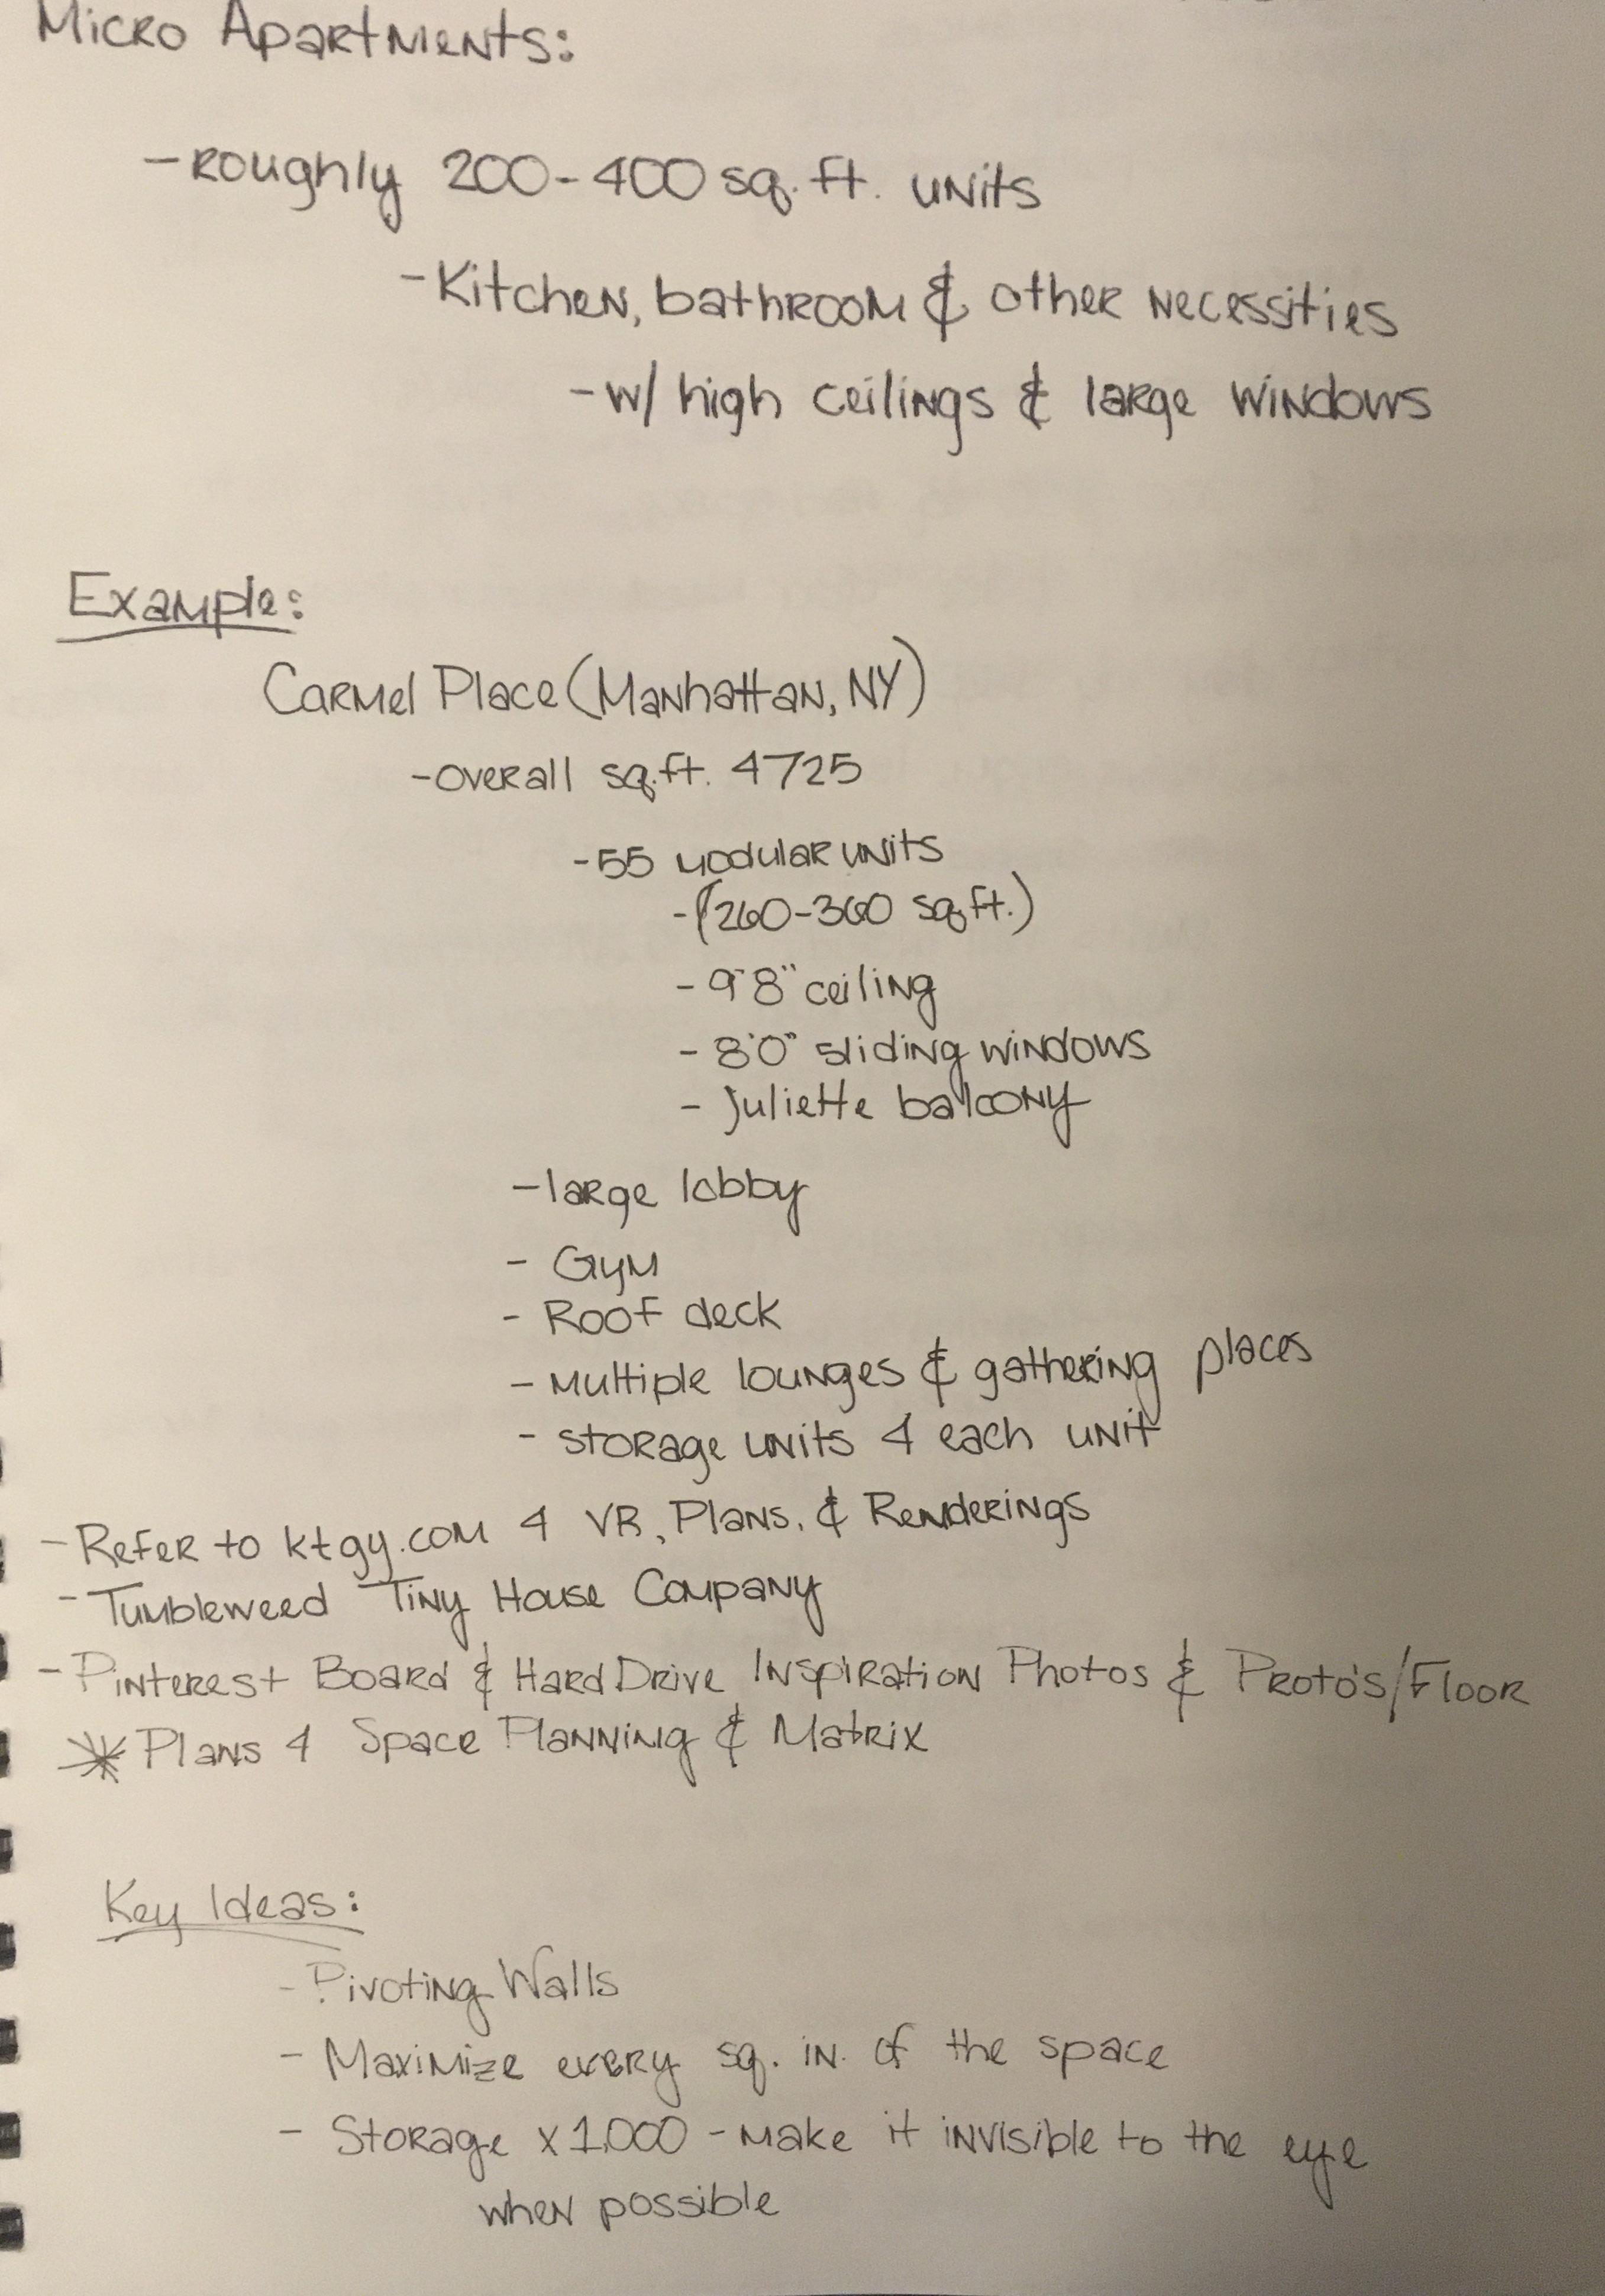 Micro Apartments:
- roughly 200-400 sq. ft. units
- Kitchen, bathroom & other necessities
- w/ high ceilings & large windows
Example:
Carmel Place (Manhattan, NY)
- overall sq.ft. 4725
- 55 modular units
- (260-360 sq.ft.)
- 9'8" ceiling
- 8'0" sliding windows
- Juliette balcony
- large lobby
- Gym
- Roof deck
- Multiple lounges & gathering places
- storage units 4 each unit
- Refer to ktgy.com 4 VR, Plans, & Renderings
- Tumbleweed Tiny House Company
- Pinterest Board & Hard Drive Inspiration Photos & Proto's/Floor
* Plans 4 Space Planning & Matrix
Key Ideas:
- Pivoting Walls
- Maximize every sq. in. of the space
- Storage x 1,000 - make it invisible to the eye
when possible